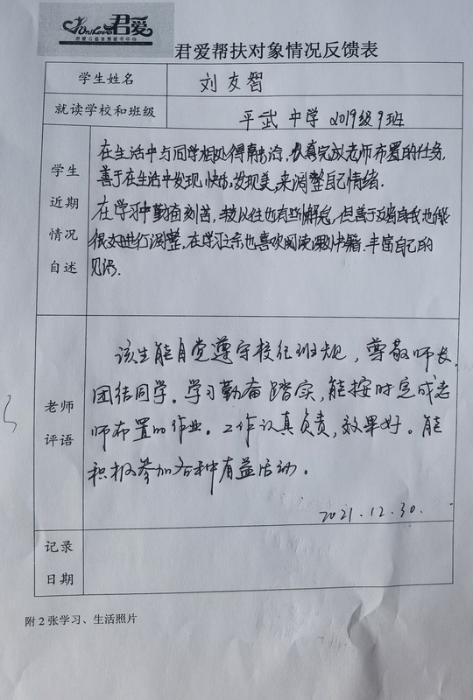 君爱
君爱帮扶对象情况反馈表
学生姓名
刘友智
就读学校和班级
平武中学 2019级9班
学生
近期
情况
自述
在生活中与同学相处得融洽,认真完成老师布置的任务,
善于在生活中发现快乐,发现美,来调整自己情绪.
在学习中勤奋刻苦,较以往也有些懈怠,但善于反省自我也能
很好地进行调整,在学习之余也喜欢阅读课外书籍.丰富自己的
见识.
老师
评语
该生能自觉遵守校纪班规,尊敬师长,
团结同学。学习勤奋踏实,能按时完成老
师布置的作业。工作认真负责,效果好。能
积极参加各种有益活动。
2021.12.30.
记录
日期
附2张学习、生活照片